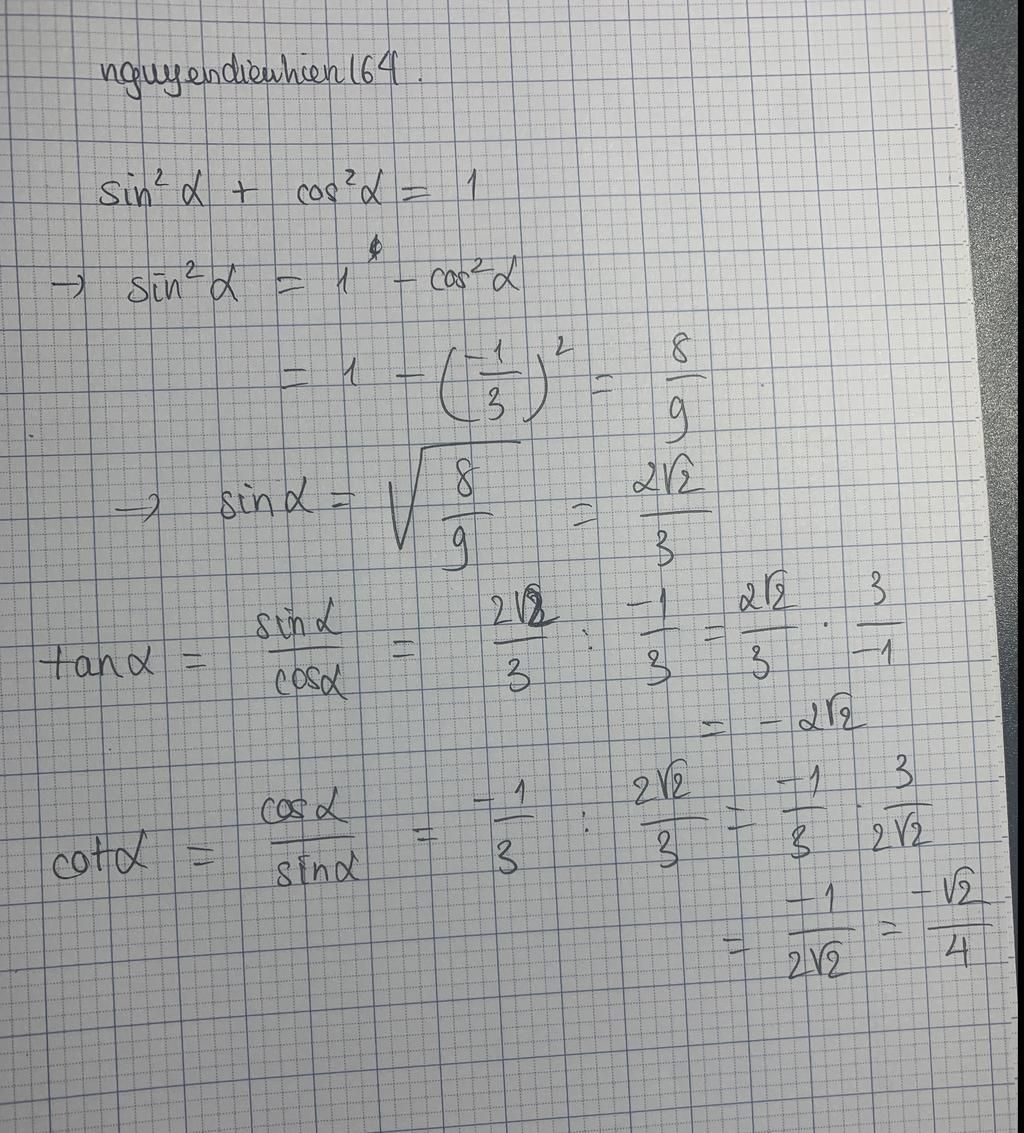 nguyendieuhien164.
sin²α + cos²α = 1
→ sin²α = 1 - cos²α
= 1 - (-1/3)² = 8/9
→ sinα = √(8/9) = 2√2/3
tanα = sinα/cosα = 2√2/3 : -1/3 = 2√2/3 · 3/-1
= -2√2
cotα = cosα/sinα = -1/3 : 2√2/3 = -1/3 · 3/2√2
= -1/2√2 = -√2/4